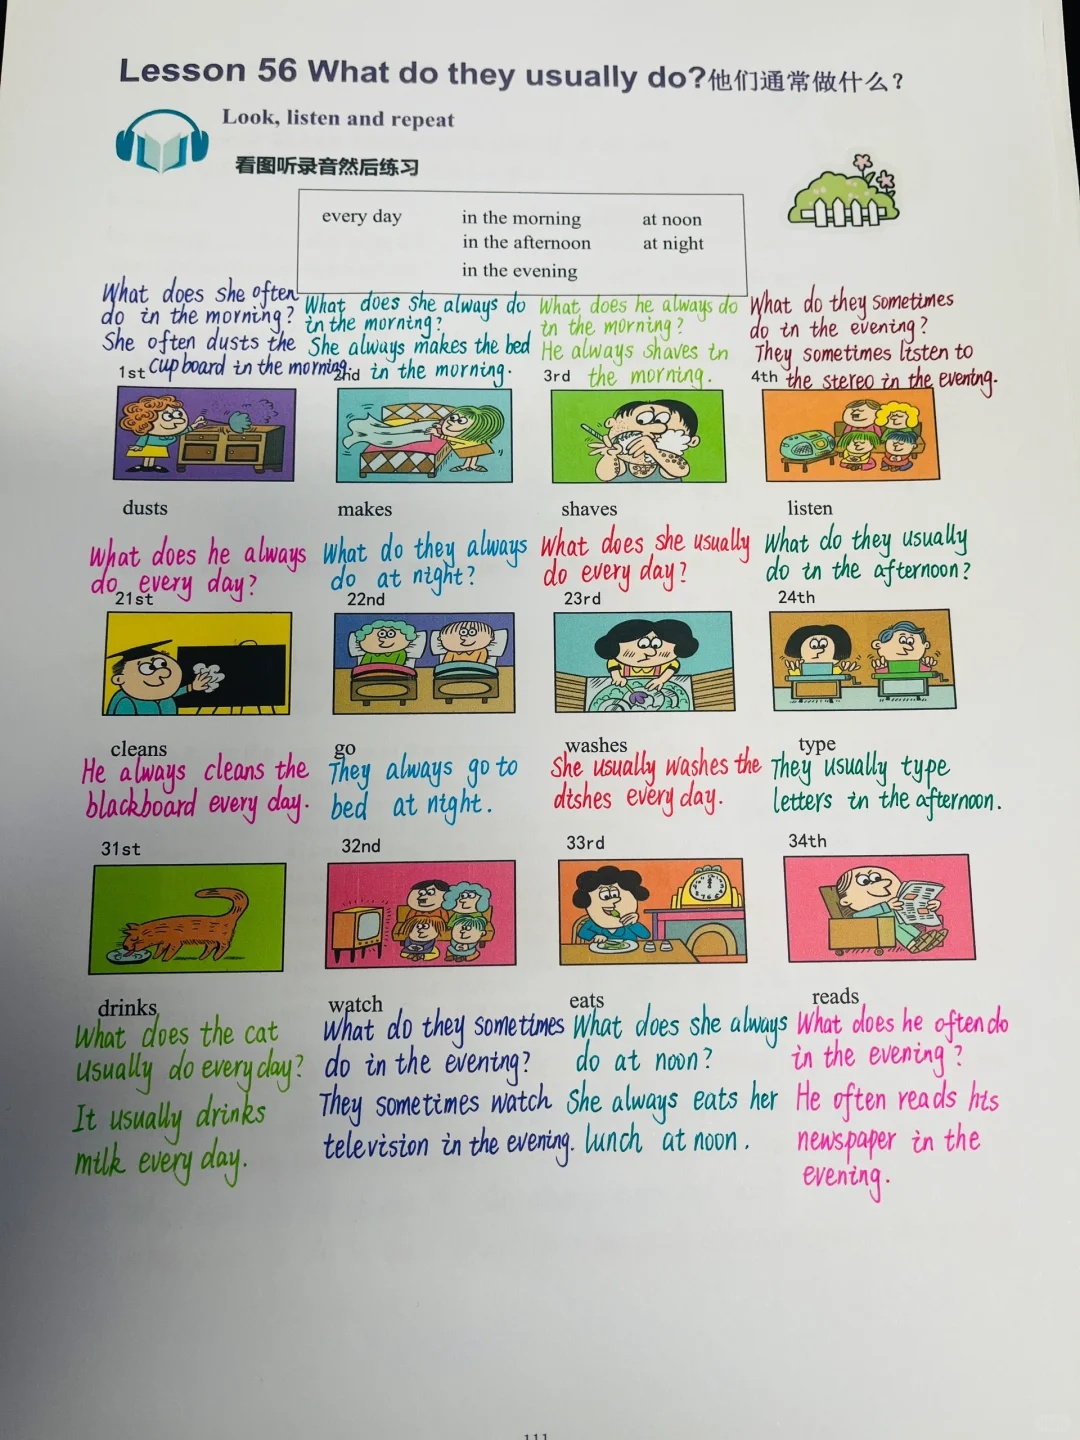 Lesson 56 What do they usually do?他们通常做什么?
Look, listen and repeat
看图听录音然后练习
every day in the morning at noon
in the afternoon at night
in the evening
What does she often
do in the morning?
She often dusts the
cupboard in the morning.
What does she always do
in the morning?
She always makes the bed
in the morning.
What does he always do
in the morning?
He always shaves in
the morning.
What do they sometimes
do in the evening?
They sometimes listen to
the stereo in the evening.
1st 2nd 3rd 4th
dusts makes shaves listen
What does he always
do every day?
What do they always
do at night?
What does she usually
do every day?
What do they usually
do in the afternoon?
21st 22nd 23rd 24th
cleans go washes type
He always cleans the
blackboard every day.
They always go to
bed at night.
She usually washes the
dishes every day.
They usually type
letters in the afternoon.
31st 32nd 33rd 34th
drinks watch eats reads
What does the cat
usually do every day?
It usually drinks
milk every day.
What do they sometimes
do in the evening?
They sometimes watch
television in the evening.
What does she always
do at noon?
She always eats her
lunch at noon.
What does he often do
in the evening?
He often reads his
newspaper in the
evening.
111